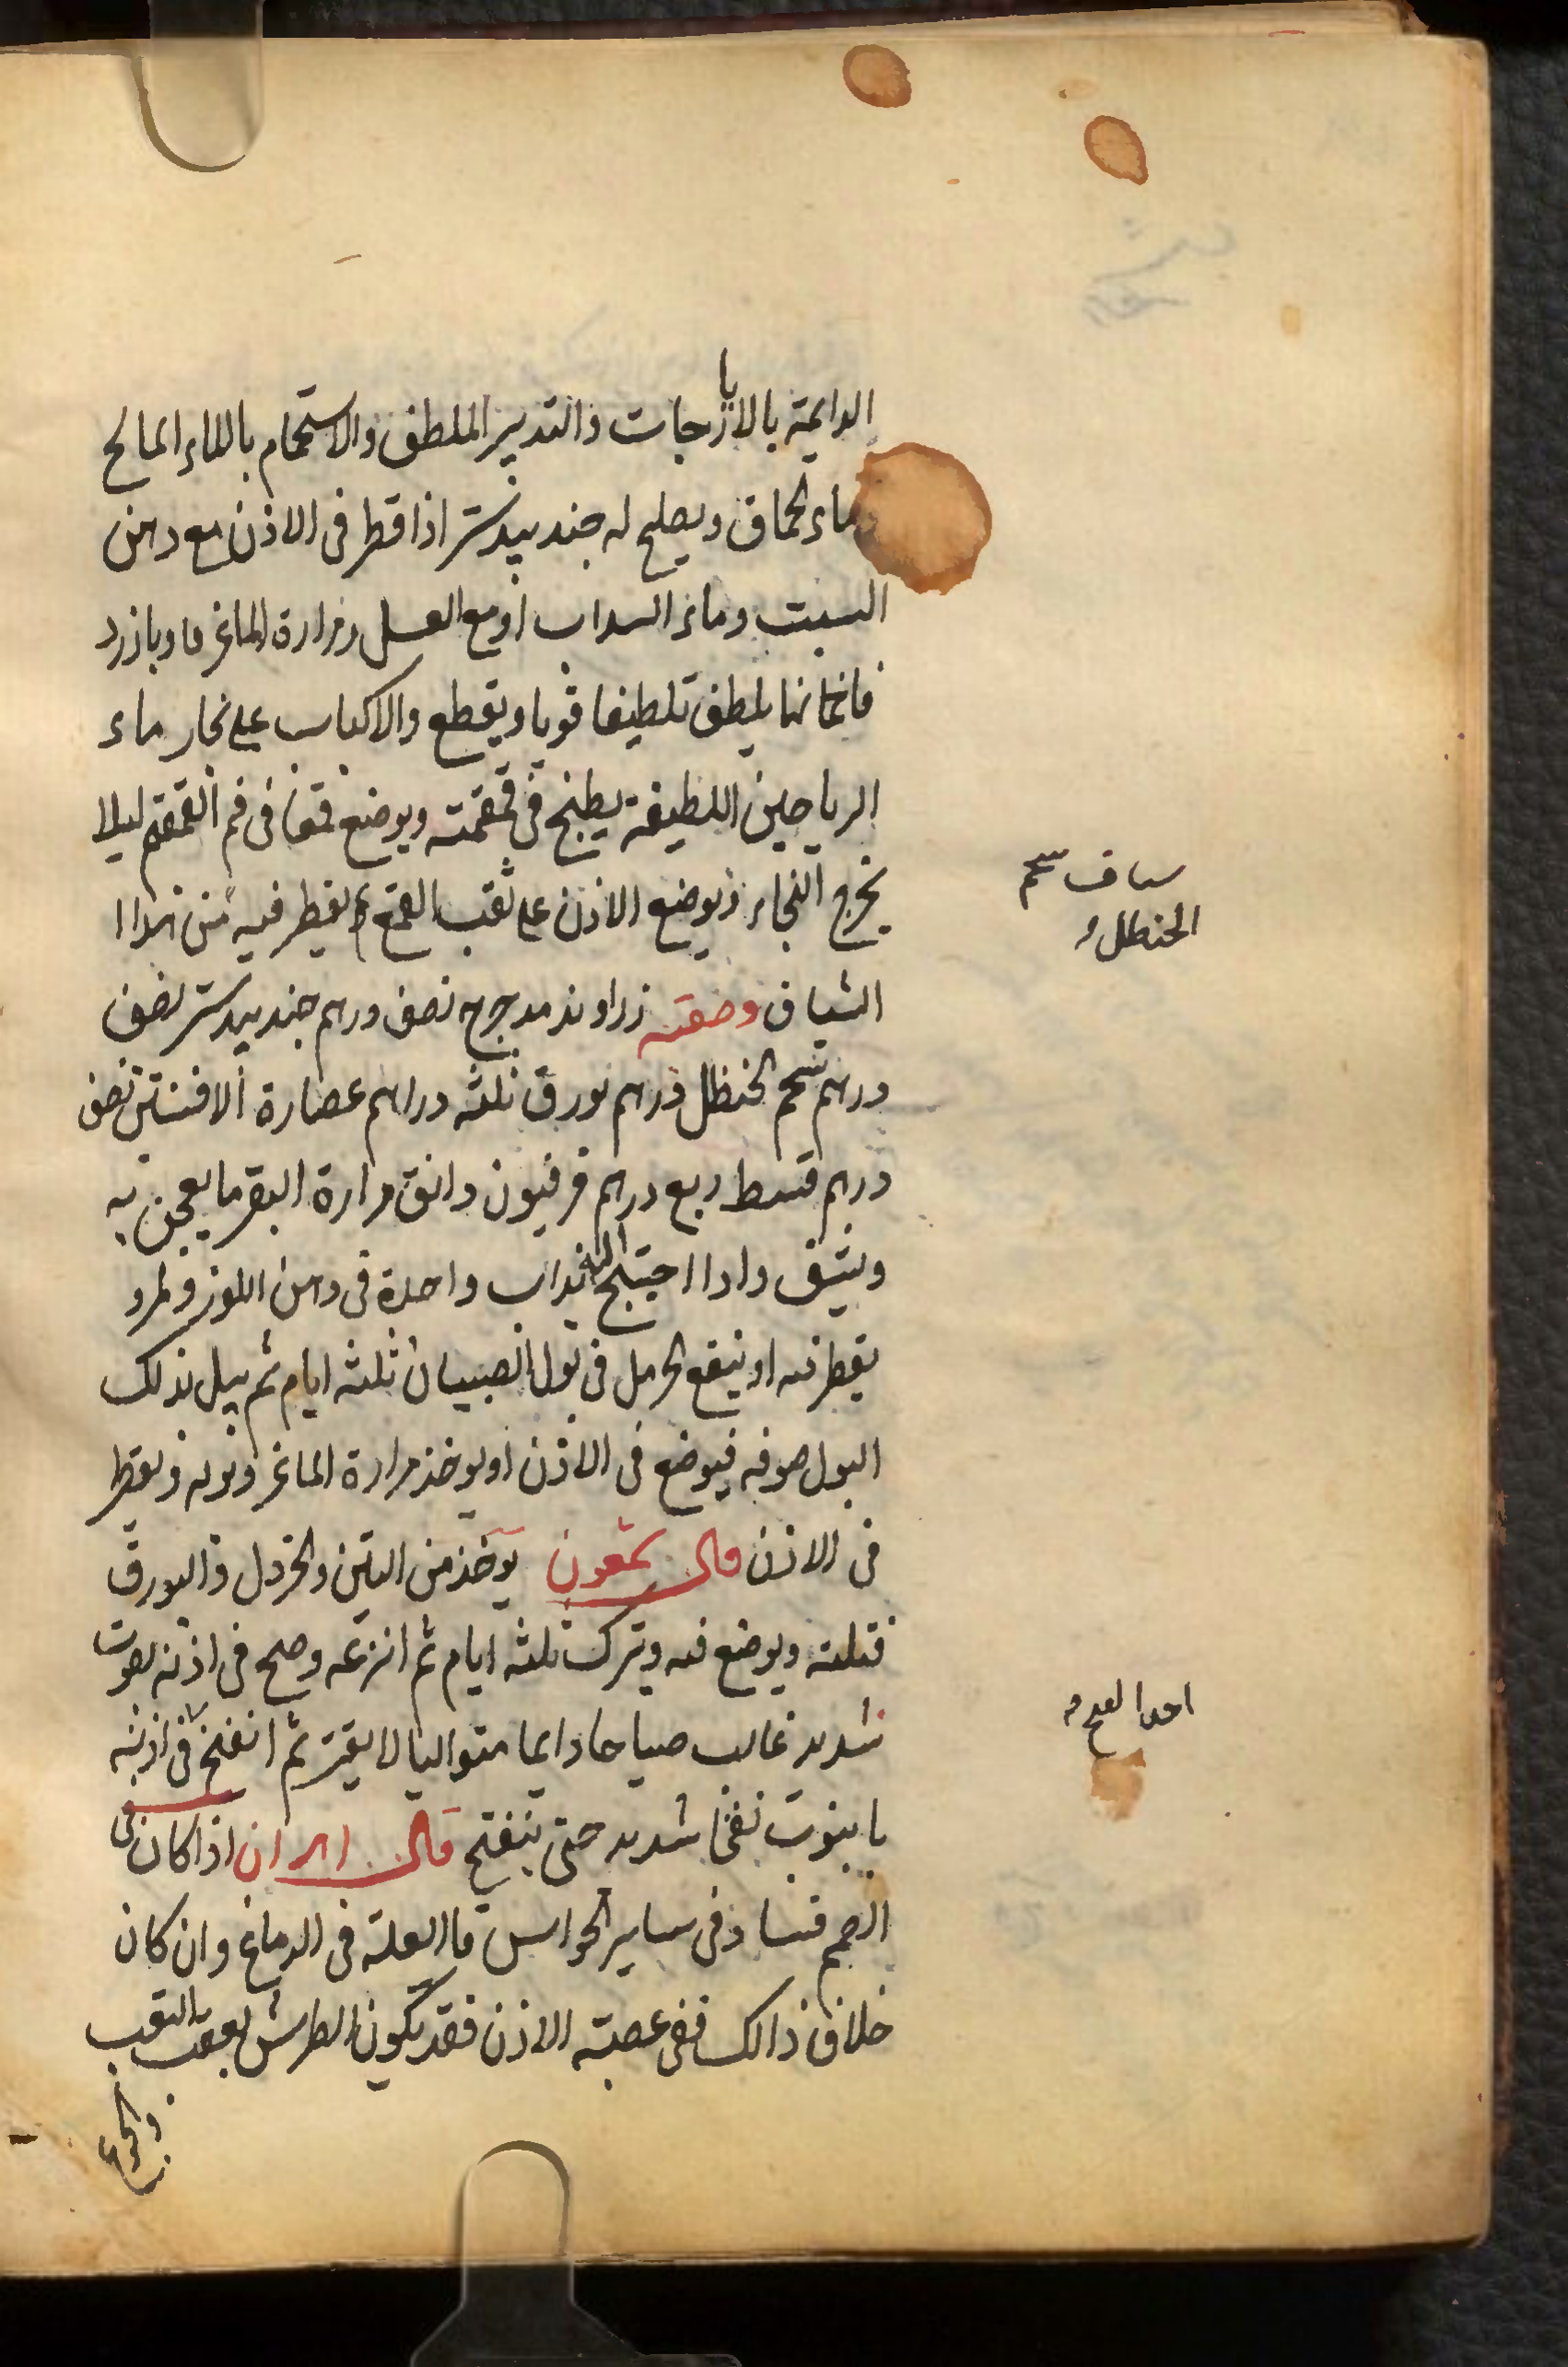 الدايمة بالايارجات والتدبير الملطف والاستحمام بالماء المالح
وماء الحماق ويصلح له جندبيدستر اذا قطر فى الاذن مع دهن
السبت وماء السداب او مع العسل ومرارة الماغر وبازرد
فانها يلطف تلطيفا قويا ويقطع والاكباب على بخار ماء
الرياحين اللطيفة يطبخ فى قمقمته ويوضع قمعا فى فم القمقم ليلا
يخرج البخار ويوضع الاذن على ثقب القمع ويقطر فيه من هذا
الشياف وصفته زراوند مدحرج نصف درهم جندبيدستر نصف
درهم شحم الحنظل درهم بورق ثلثه دراهم عصارة الافسنتين نصف
درهم قسط ربع درهم فرفيون دانق مرارة البقر ما يعجن به
ويشيف واذا احتيج اليه يداب واحدة فى دهن اللوز ولمرو
يقطر فيه او ينقع الحرمل فى بول الصبيان ثلثه ايام ثم يبل بذلك
البول صوفه فيوضع فى الاذن او يوخذ مرارة الماغر وبوله ويقطر
فى الاذن قال شمعون يوخذ من التين والخردل والبورق
فتلته ويوضع فيه ويترك ثلثه ايام ثم انزعه وصح فى اذنه بصوت
شديد غالب صياحا دايما متواليا لا يفتر ثم انفخ فى اذنه
بابنوب نفخا شديد حتى ينفتح قال اهرن اذا كان فى
الصمم فساد وفى ساير الحواس فالعلة فى الدماغ وان كان
خلاف ذالك ففى عصبة الاذن فقد يكون الطرش بعقب التعب
والجوع
سياف شحم
الحنظل